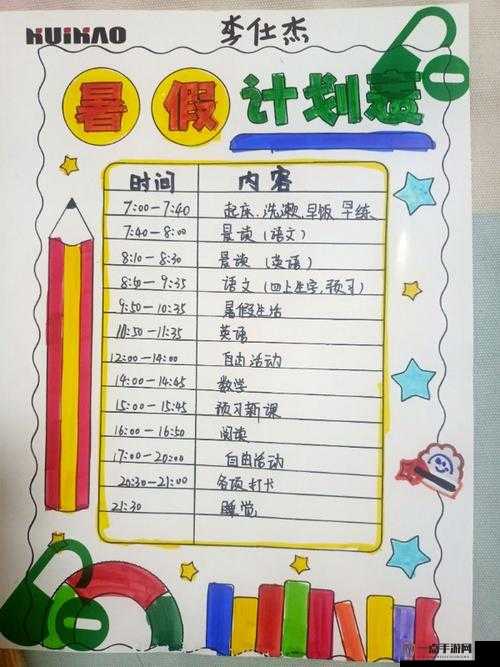 KUIHAO
李仕杰
暑假计划表
时间 内容
7:00-7:40 起床、洗漱、早饭、早练
7:40-8:00 晨读(语文)
8:10-8:30 晨读(英语)
8:50-9:35 语文(四上生字、预习)
9:50-10:35 暑假生活
10:50-11:35 英语
12:00-14:00 自由活动
14:00-14:45 数学
15:00-15:45 预习新课
16:00-16:50 阅读
17:00-20:00 自由活动
20:30-21:00 各项打卡
21:30 睡觉
一点手游网